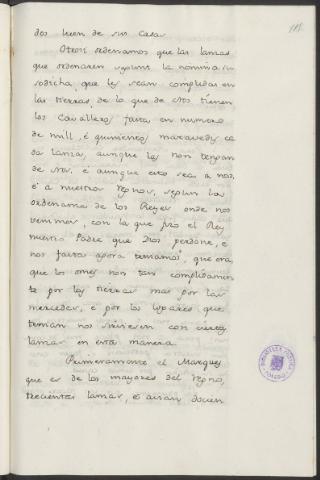 dos bien de sus Casas
Otrosi ordenamos que las lanzas
que ordenaren segund la nomina su
sodicha, que les sean compladas en
las tierras, de la que de Nos tienen
los Cavalleros fasta en numero
de mill, é quinientos maravedis ca
da lanza, aunque les non tengan
de Nos, é aunque esto sea a nos,
é a nuestros regnos, segun los
ordenamos de los Reyes onde nos
venimos, con la que fizo el Rey
nuestro Padre que Dios perdone, e
nos fasta agora teniamos, que era,
que los omes non tan complidamen
te por las tierras mas por las
mercedes, é por los logares que
tenian nos sirviesen con ciertas
lanzas en esta manera.
Primeramente el Marques
que es de los mayores del regno,
trecientas lanzas, é avian docien